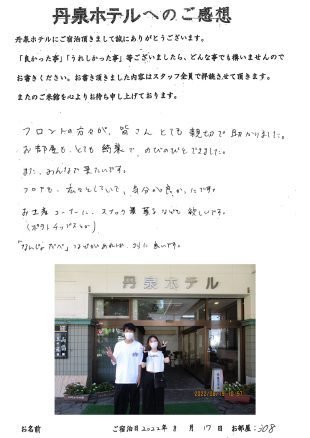 丹泉ホテルへのご感想
丹泉ホテルにご宿泊頂きまして誠にありがとうございます。
「良かった事」「うれしかった事」等ございましたら、どんな事でも構いませんので
お書きください。お書き頂きました内容はスタッフ全員で拝読させて頂きます。
またのご来館を心よりお待ち申し上げております。
フロントの方々が、皆さんとても親切で助かりました。
お部屋も、とても綺麗で、のびのびとできました。
また、みんなで来たいです。
フロでも、広々としていて、気分が良かったです。
お土産コーナーに、スナック菓子なども欲しいです。
(ポテトチップスとか)
丹泉ホテル
2022/08/18 10:57
お名前
ご宿泊日2022年 8月 17日 お部屋:308